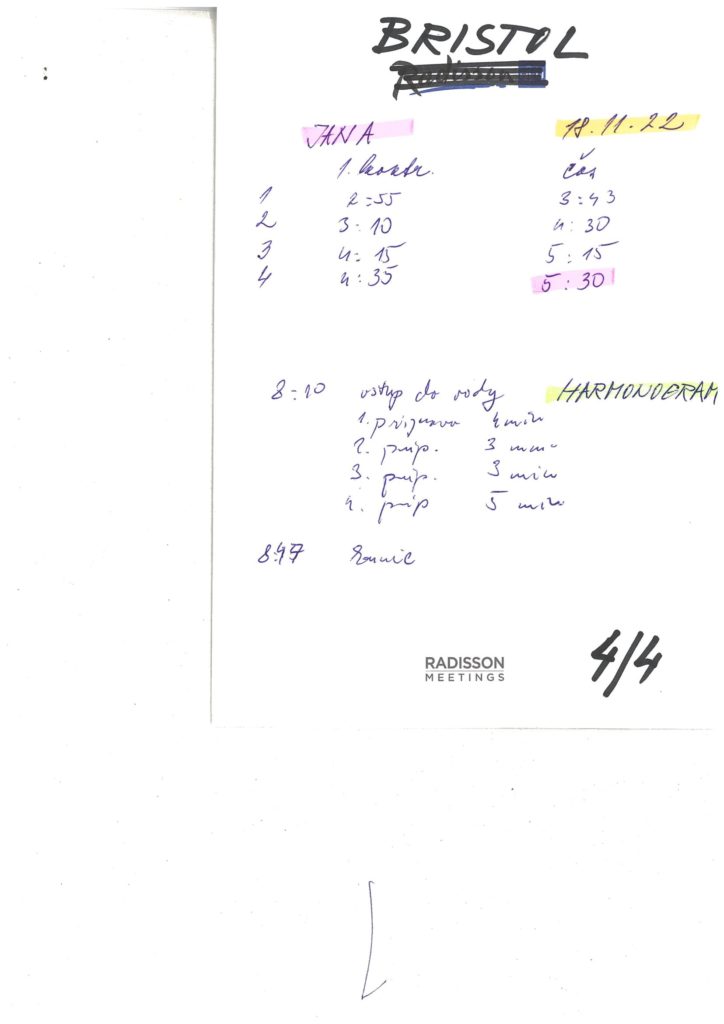 BRISTOL
Radisson
JANA 18.11.22
1. kontr. čas
1 2:55 3:43
2 3:10 4:30
3 4:15 5:15
4 4:35 5:30
8:10 vstup do vody HARMONOGRAM
1. príprava 4 min
2. príp. 3 min
3. príp. 3 min
4. príp 5 min
8:47 koniec
RADISSON
MEETINGS
4/4